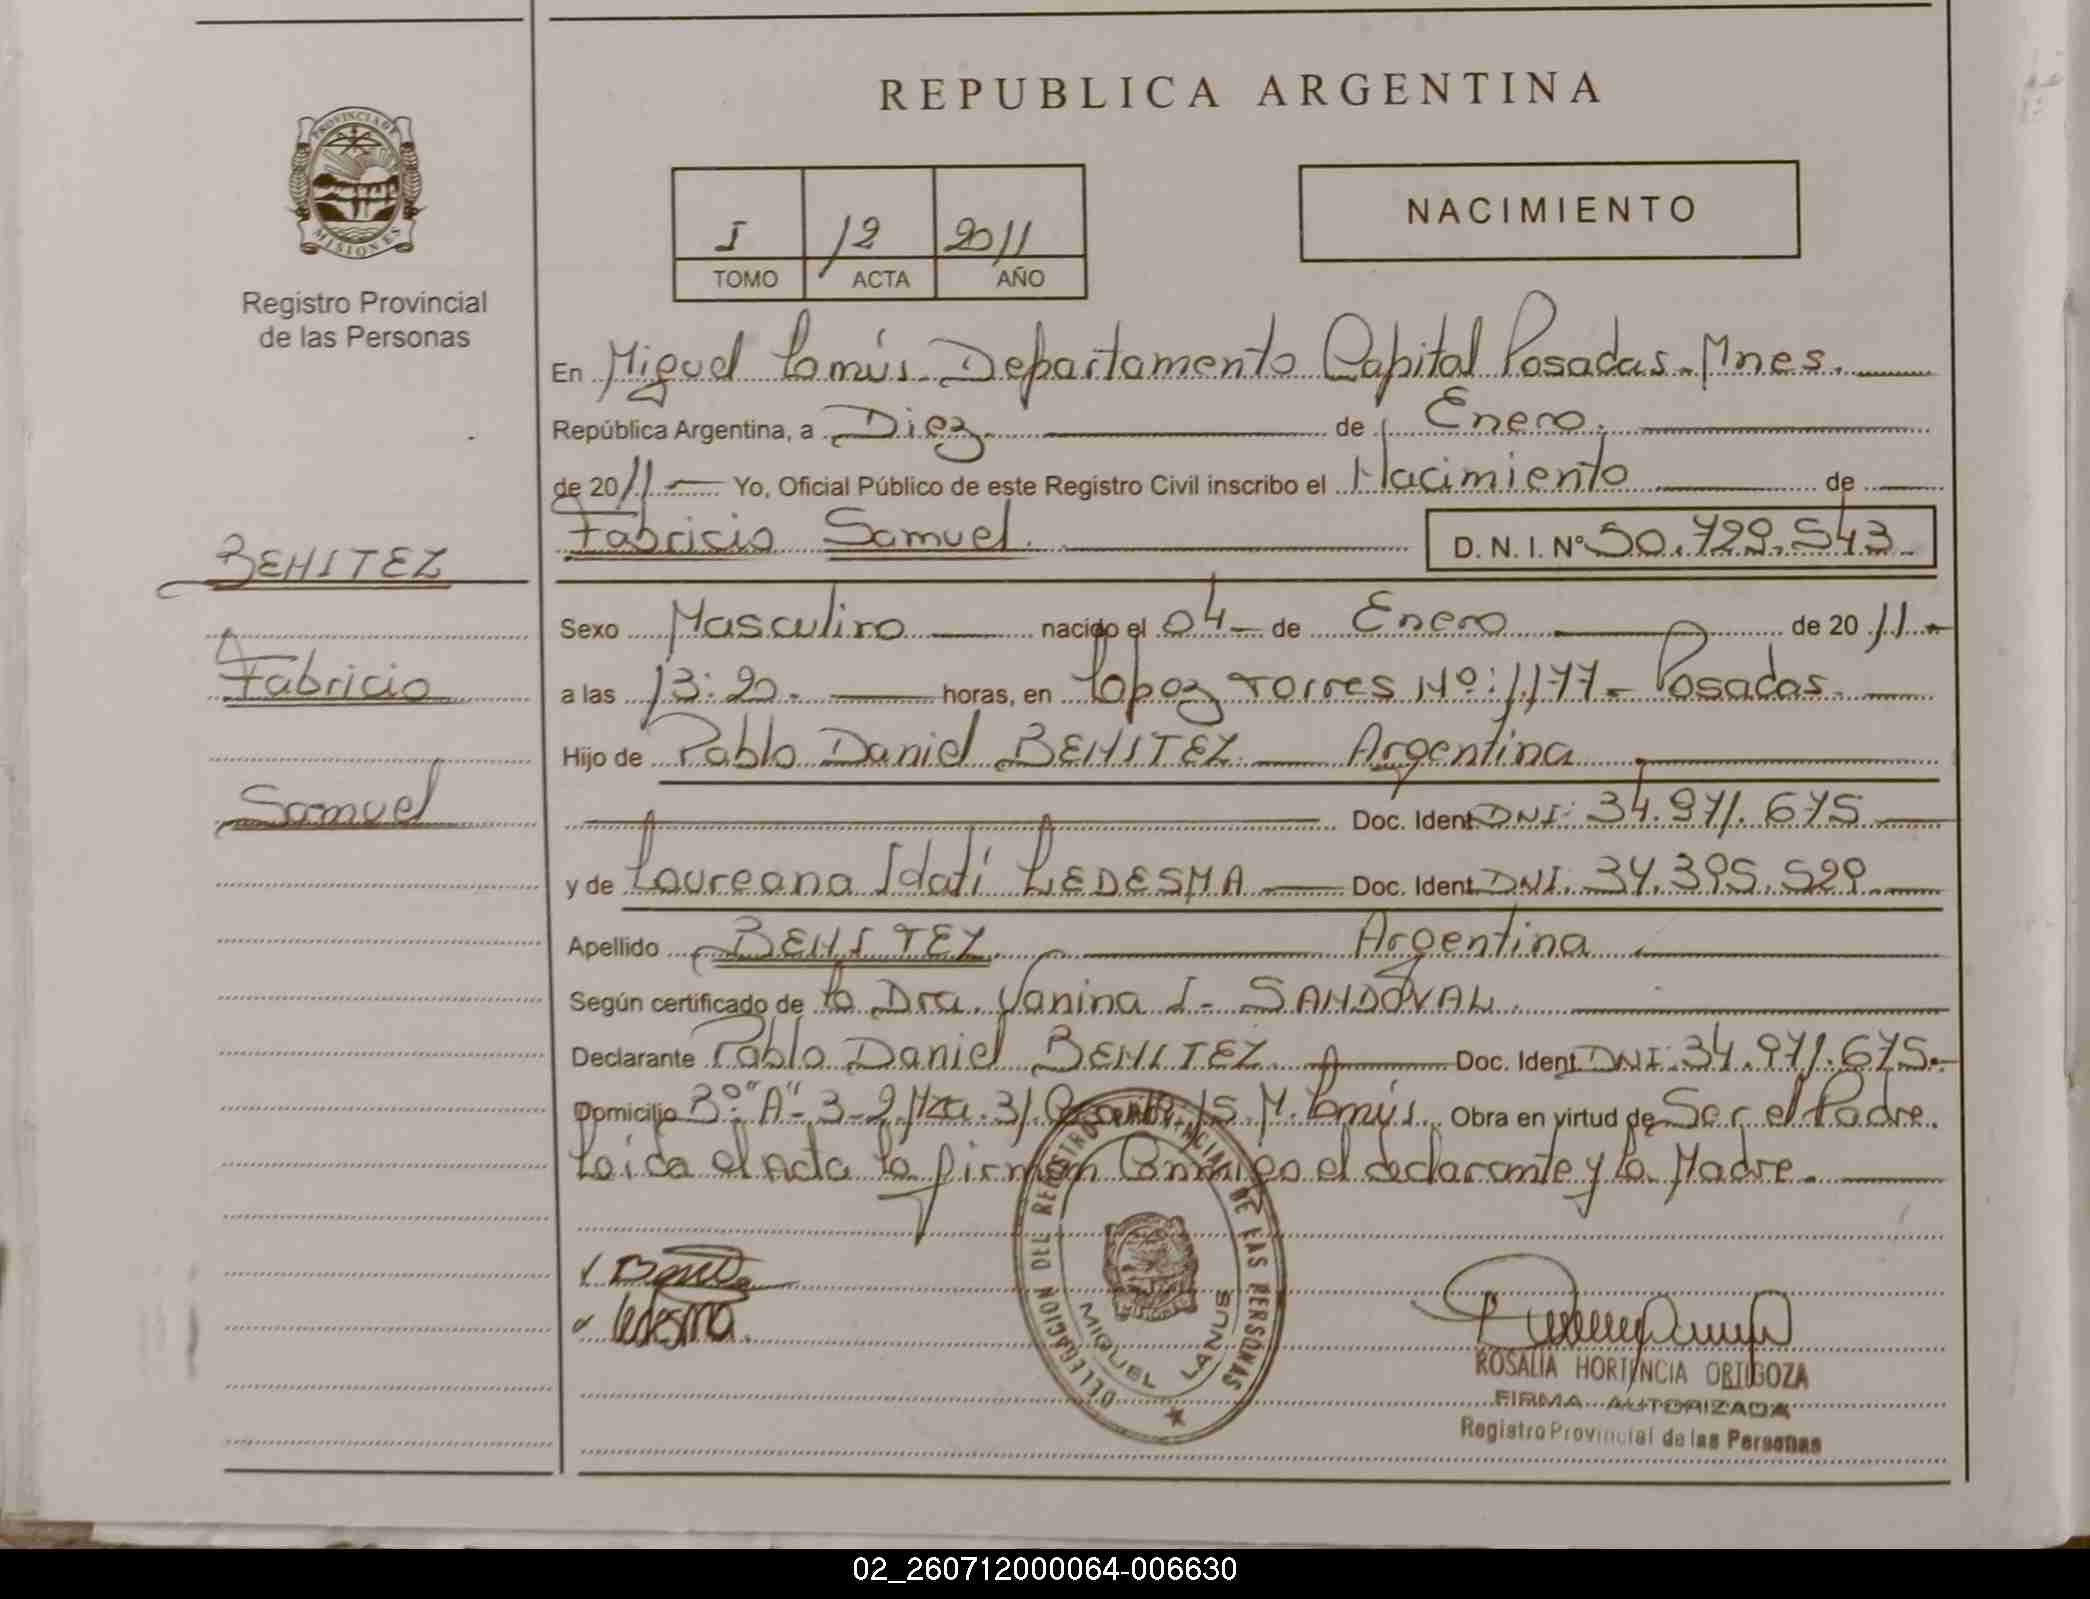 REPUBLICA ARGENTINA
PROVINCIA DE
MISIONES
Registro Provincial
de las Personas
I 12 2011
TOMO ACTA AÑO
NACIMIENTO
En Miguel Lanús. Departamento Capital Posadas. Mnes.
República Argentina, a Diez de Enero.
de 2011 Yo, Oficial Público de este Registro Civil inscribo el Nacimiento de
Fabricio Samuel. D. N. I. Nº 50.729.543
BENITEZ
Fabricio
Samuel
Sexo Masculino nacido el 04 de Enero de 2011
a las 13:20. horas, en Lopez Torres Nº: 1.177 - Posadas.
Hijo de Pablo Daniel BENITEZ Argentina
Doc. Ident DNI: 34.971.675
y de Laureana Idatí LEDESMA Doc. Ident DNI. 34.395.529
Apellido BENITEZ Argentina
Según certificado de la Dra. Vanina I. SANDOVAL.
Declarante Pablo Daniel BENITEZ Doc. Ident. DNI: 34.971.675.
Domicilio Bº "A" 3-2 Mza. 31 15 M. Lanús. Obra en virtud de Ser el Padre.
Leida el Acta la firman Conmigo el declarante y la Madre.
Ledesma.
DELEGACION DEL REGISTRO PROVINCIAL DE LAS PERSONAS
MIGUEL LANUS
ROSALIA HORTENCIA ORTIGOZA
FIRMA AUTORIZADA
Registro Provincial de las Personas
02_260712000064-006630